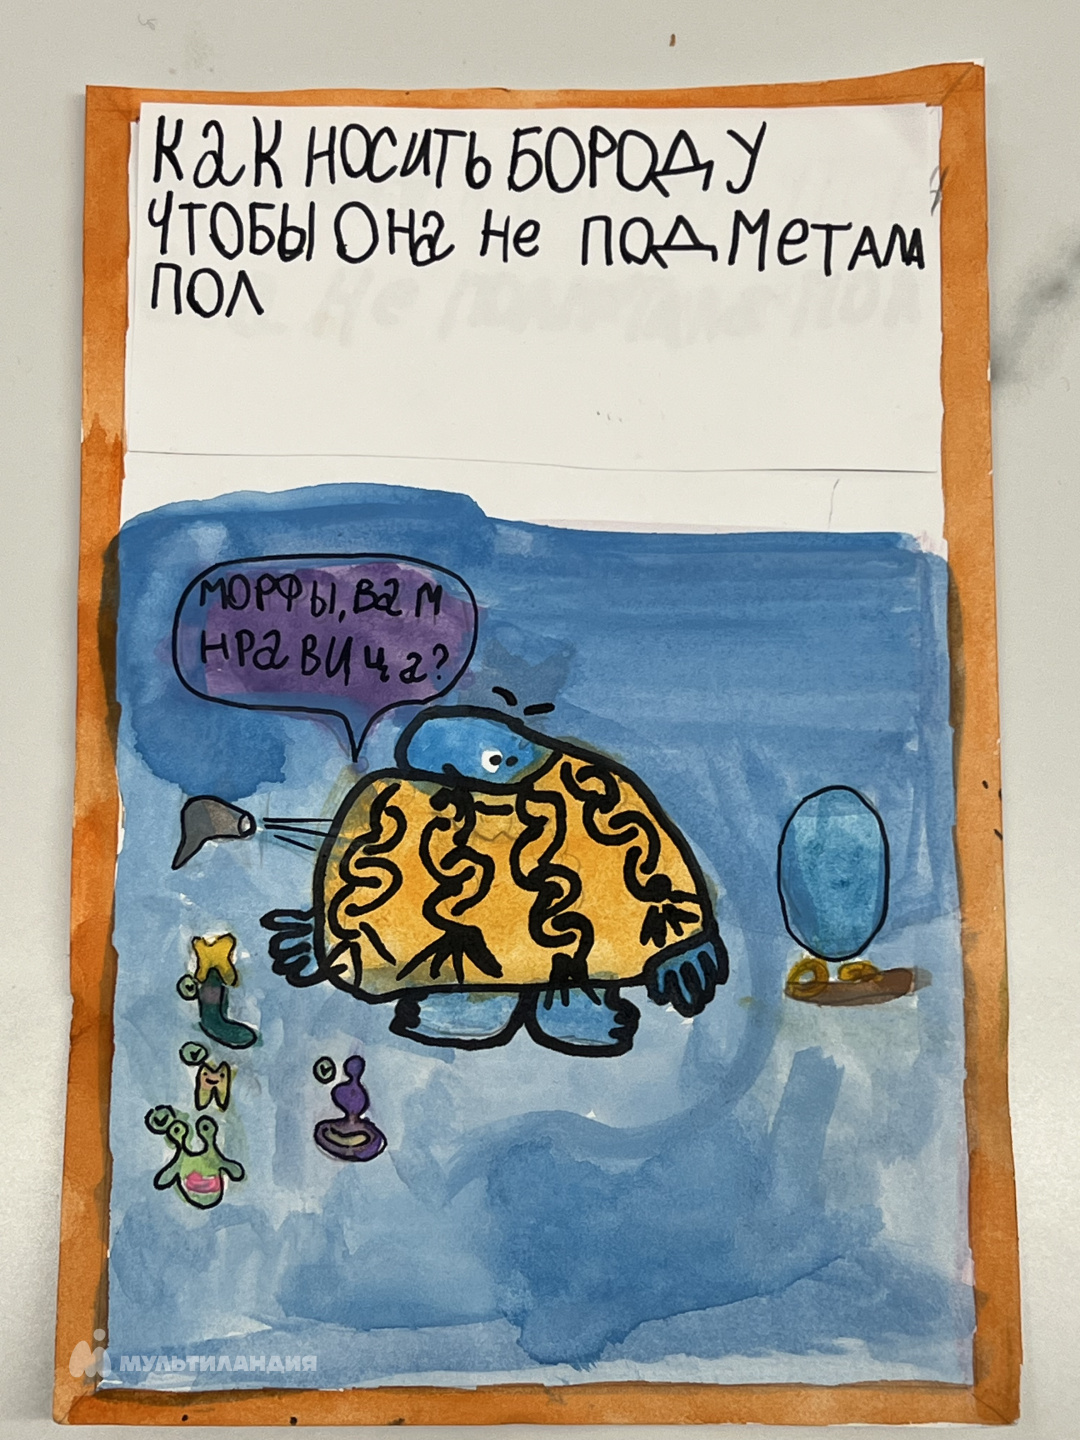 как носить БОРОДУ
ЧТОБЫ ОНа Не ПОДМеТАЛА
ПОЛ
МОРФЫ, Вам
НРаВИЦа?
МУЛЬТИЛАНДИЯ